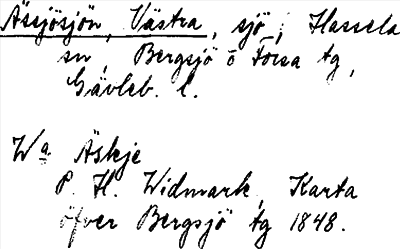 Ässjösjön, Västra, sjö i Hassela
sn, Bergsjö o Forsa tg,
Gävleb. l.
Wa Äskje
P. H. Widmark, Karta
öfver Bergsjö tg 1848.